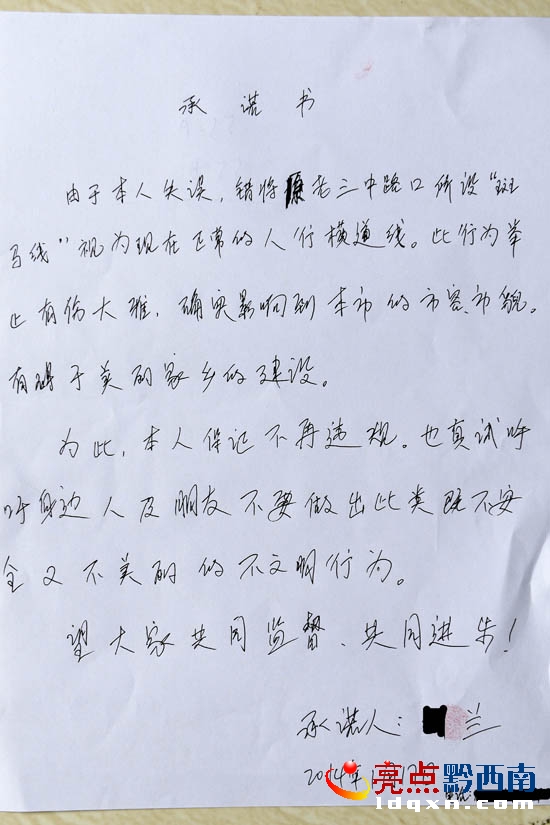 承诺书
由于本人失误,错将原老三中路口所设“斑
马线”视为现在正常的人行横道线。此行为举
止有伤大雅,确实影响到本市的市容市貌。
有碍于美丽家乡的建设。
为此,本人保记不再违规。也真试呼
吁身边人及朋友不要做出此类既不安
全又不美丽的不文明行为。
望大家共同监督、共同进步!
承诺人: 兰
2014年
亮点黔西南
ldqxn.com